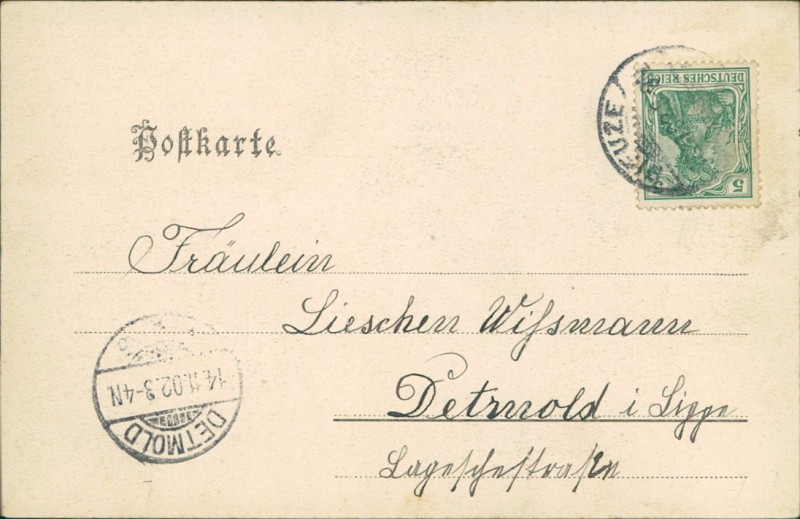 DEUTSCHES REICH
5
DIEUZE
Postkarte
Fräulein
Lieschen Wißmann
Detmold i Lippe
Lageschestraße
14.11.02.3-4N.
DETMOLD